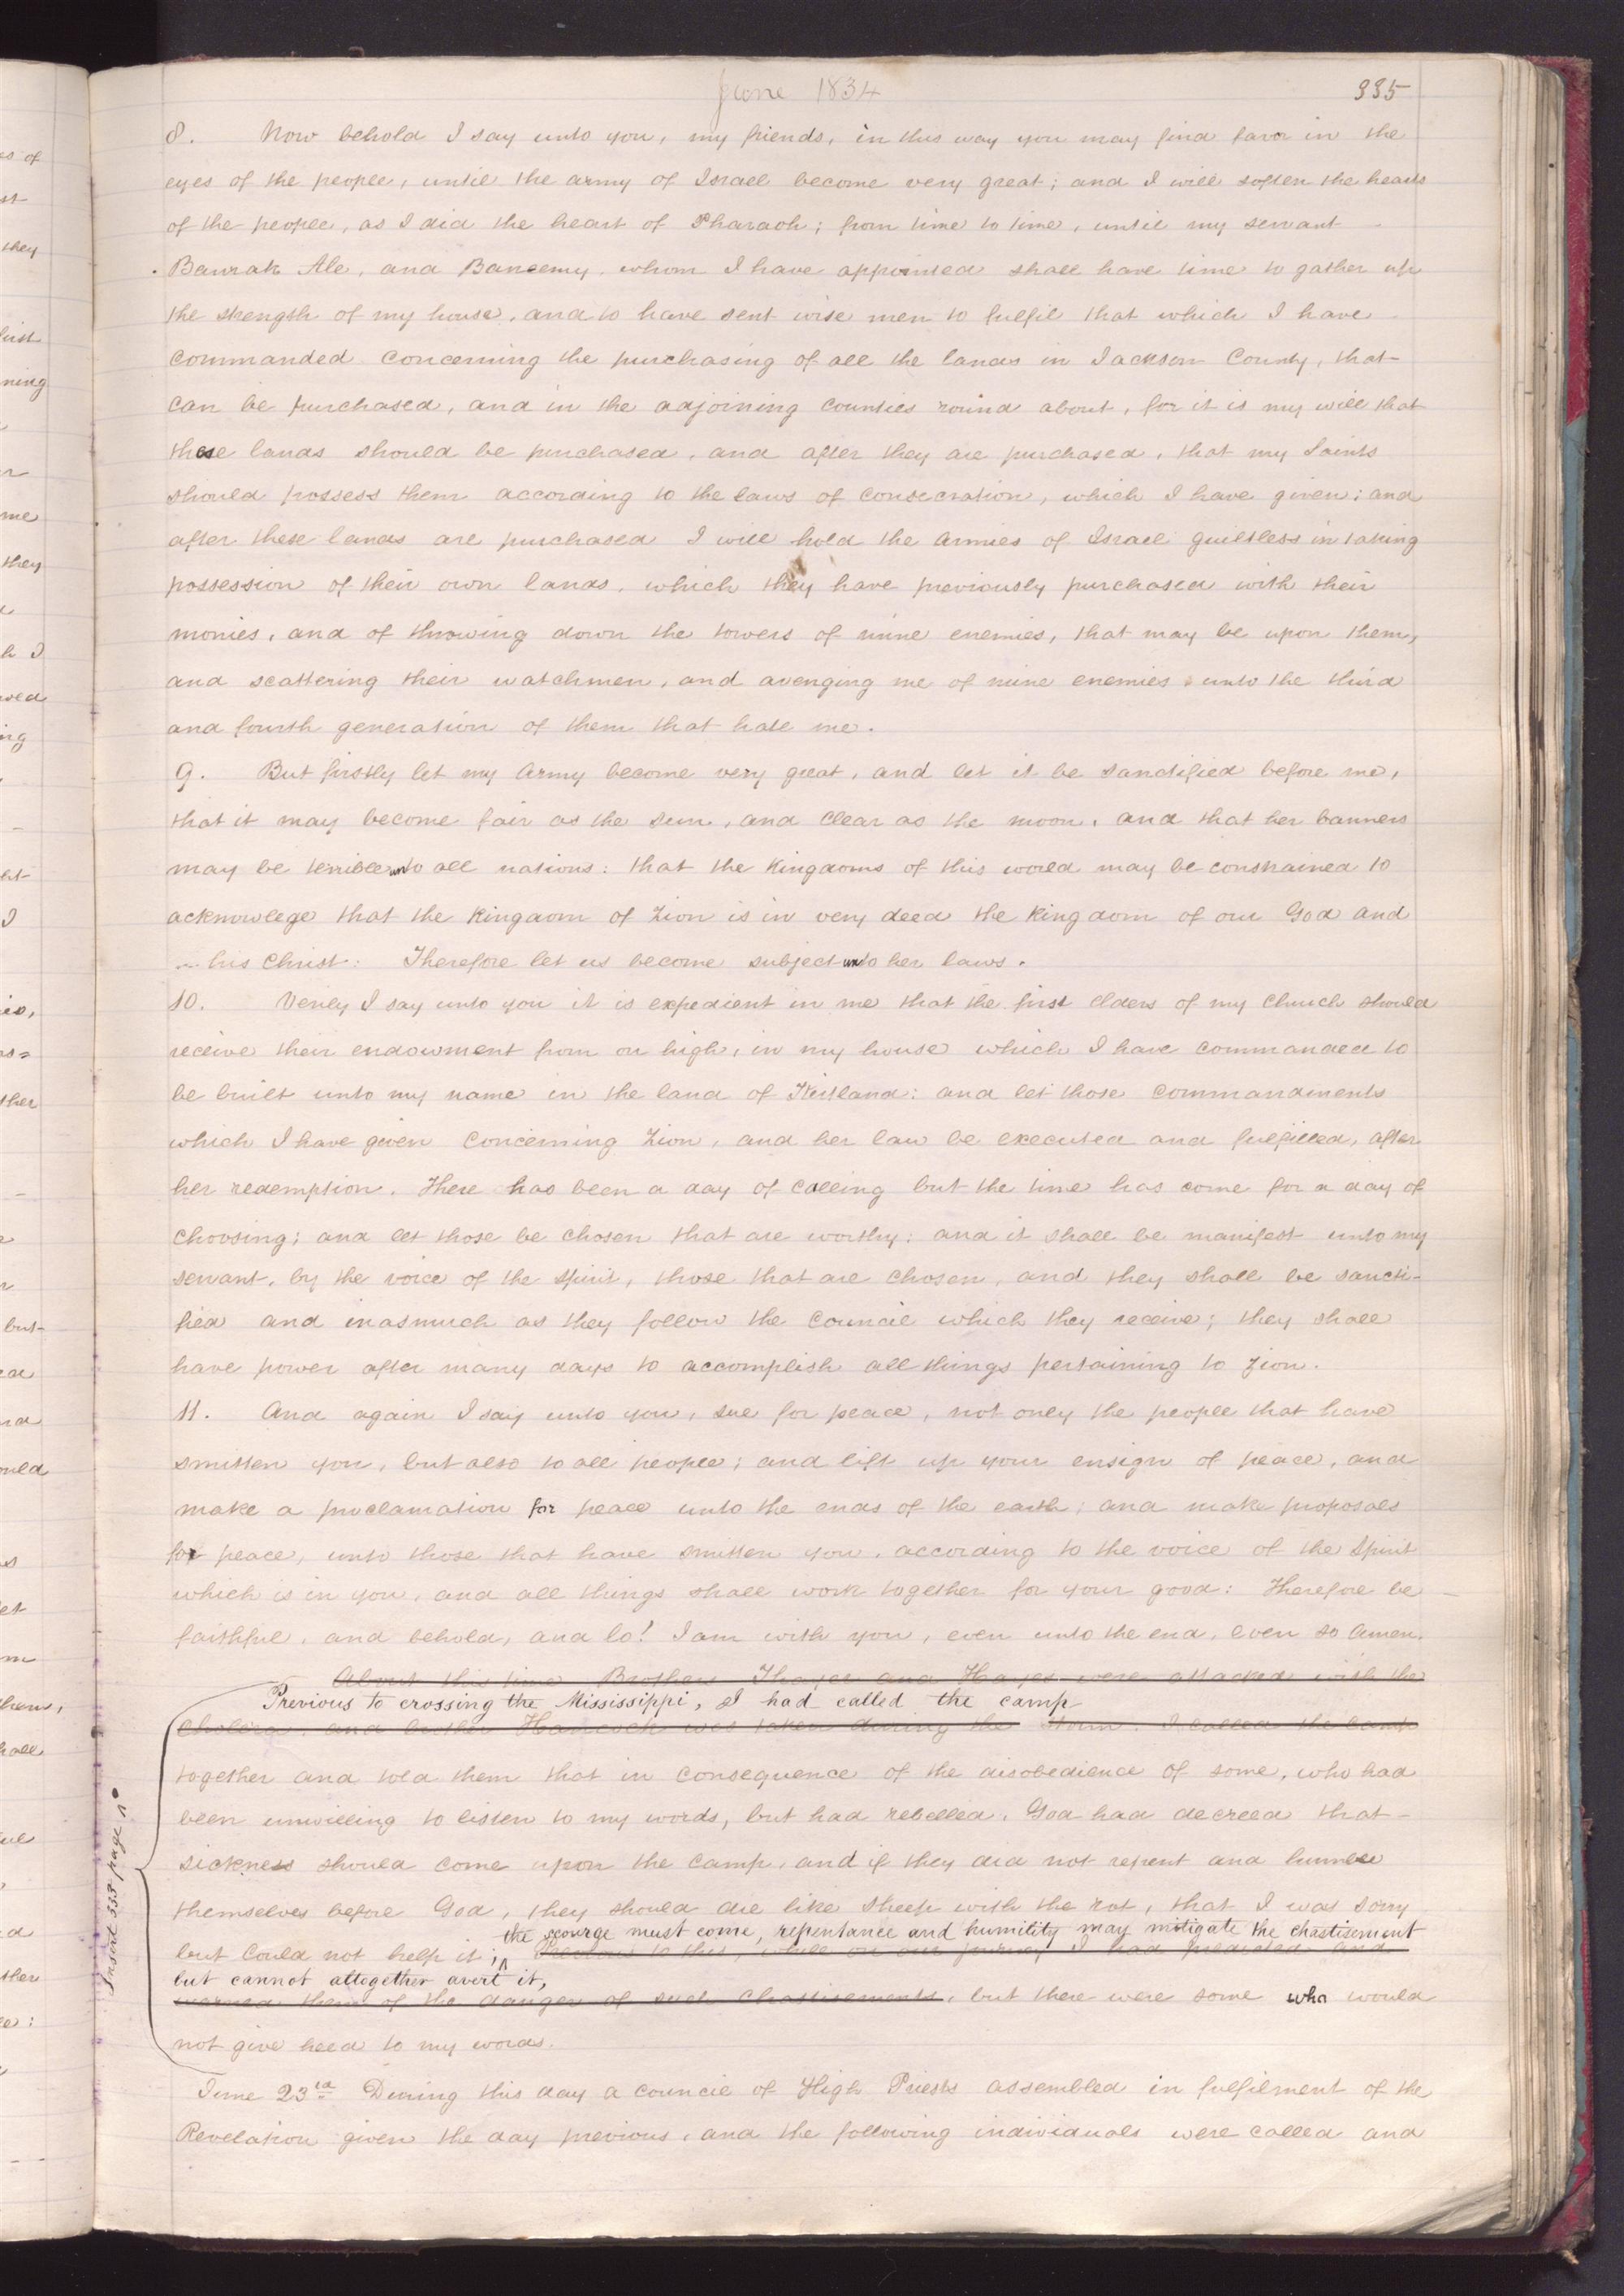 June 1834
335
8. Now behold I say unto you, my friends, in this way you may find favor in the
eyes of the people, until the army of Israel become very great; and I will soften the hearts
of the people, as I did the heart of Pharaoh; from time to time, until my servant
Baurak Ale, and Baneemy, whom I have appointed shall have time to gather up
the strength of my house, and to have sent wise men to fulfil that which I have
commanded concerning the purchasing of all the lands in Jackson County, that
can be purchased, and in the adjoining counties round about, for it is my will that
these lands should be purchased, and after they are purchased, that my Saints
should possess them according to the laws of consecration, which I have given; and
after these lands are purchased I will hold the armies of Israel guiltless in taking
possession of their own lands, which they have previously purchased with their
monies, and of throwing down the towers of mine enemies, that may be upon them,
and scattering their watchmen, and avenging me of mine enemies unto the third
and fourth generation of them that hate me.
9. But firstly let my Army become very great, and let it be sanctified before me,
that it may become fair as the sun, and clear as the moon, and that her banners
may be terrible unto all nations: that the kingdoms of this world may be constrained to
acknowlege that the kingdom of Zion is in very deed the kingdom of our God and
his Christ: Therefore let us become subject unto her laws.
10. Verily I say unto you it is expedient in me that the first Elders of my Church should
receive their endowment from on high, in my house which I have commanded to
be built unto my name in the land of Kirtland: and let those commandments
which I have given concerning Zion, and her law be executed and fulfilled, after
her redemption. There has been a day of calling but the time has come for a day of
choosing; and let those be chosen that are worthy: and it shall be manifest unto my
servant, by the voice of the spirit, those that are chosen, and they shall be sancti-
fied and inasmuch as they follow the council which they receive; they shall
have power after many days to accomplish all things pertaining to Zion.
11. And again I say unto you, sue for peace, not only the people that have
smitten you, but also to all people; and lift up your ensign of peace, and
make a proclamation for peace unto the ends of the earth; and make proposals
for peace, unto those that have smitten you, according to the voice of the Spirit
which is in you, and all things shall work together for your good: Therefore be
faithful, and behold, and lo! I am with you, even unto the end, even so Amen.
About this time Brothers Thayer and Hayes were attacked with the
Previous to crossing the Mississippi, I had called the camp
cholera, and brother Hancock was taken during the storm. I called the camp
together and told them that in consequence of the disobedience of some, who had
been unwilling to listen to my words, but had rebelled, God had decreed that
sickness should come upon the camp, and if they did not repent and humble
themselves before God, they should die like sheep with the rot, that I was sorry
the scourge must come, repentance and humility may mitigate the chastisement
but could not help it; Previous to this, while on our journey I had predicted and
but cannot altogether avert it,
warned them of the danger of such chastisements, but there were some who would
not give heed to my words.
Insert 333 page
June 23rd During this day a council of High Priests assembled in fulfilment of the
Revelation given the day previous, and the following individuals were called and